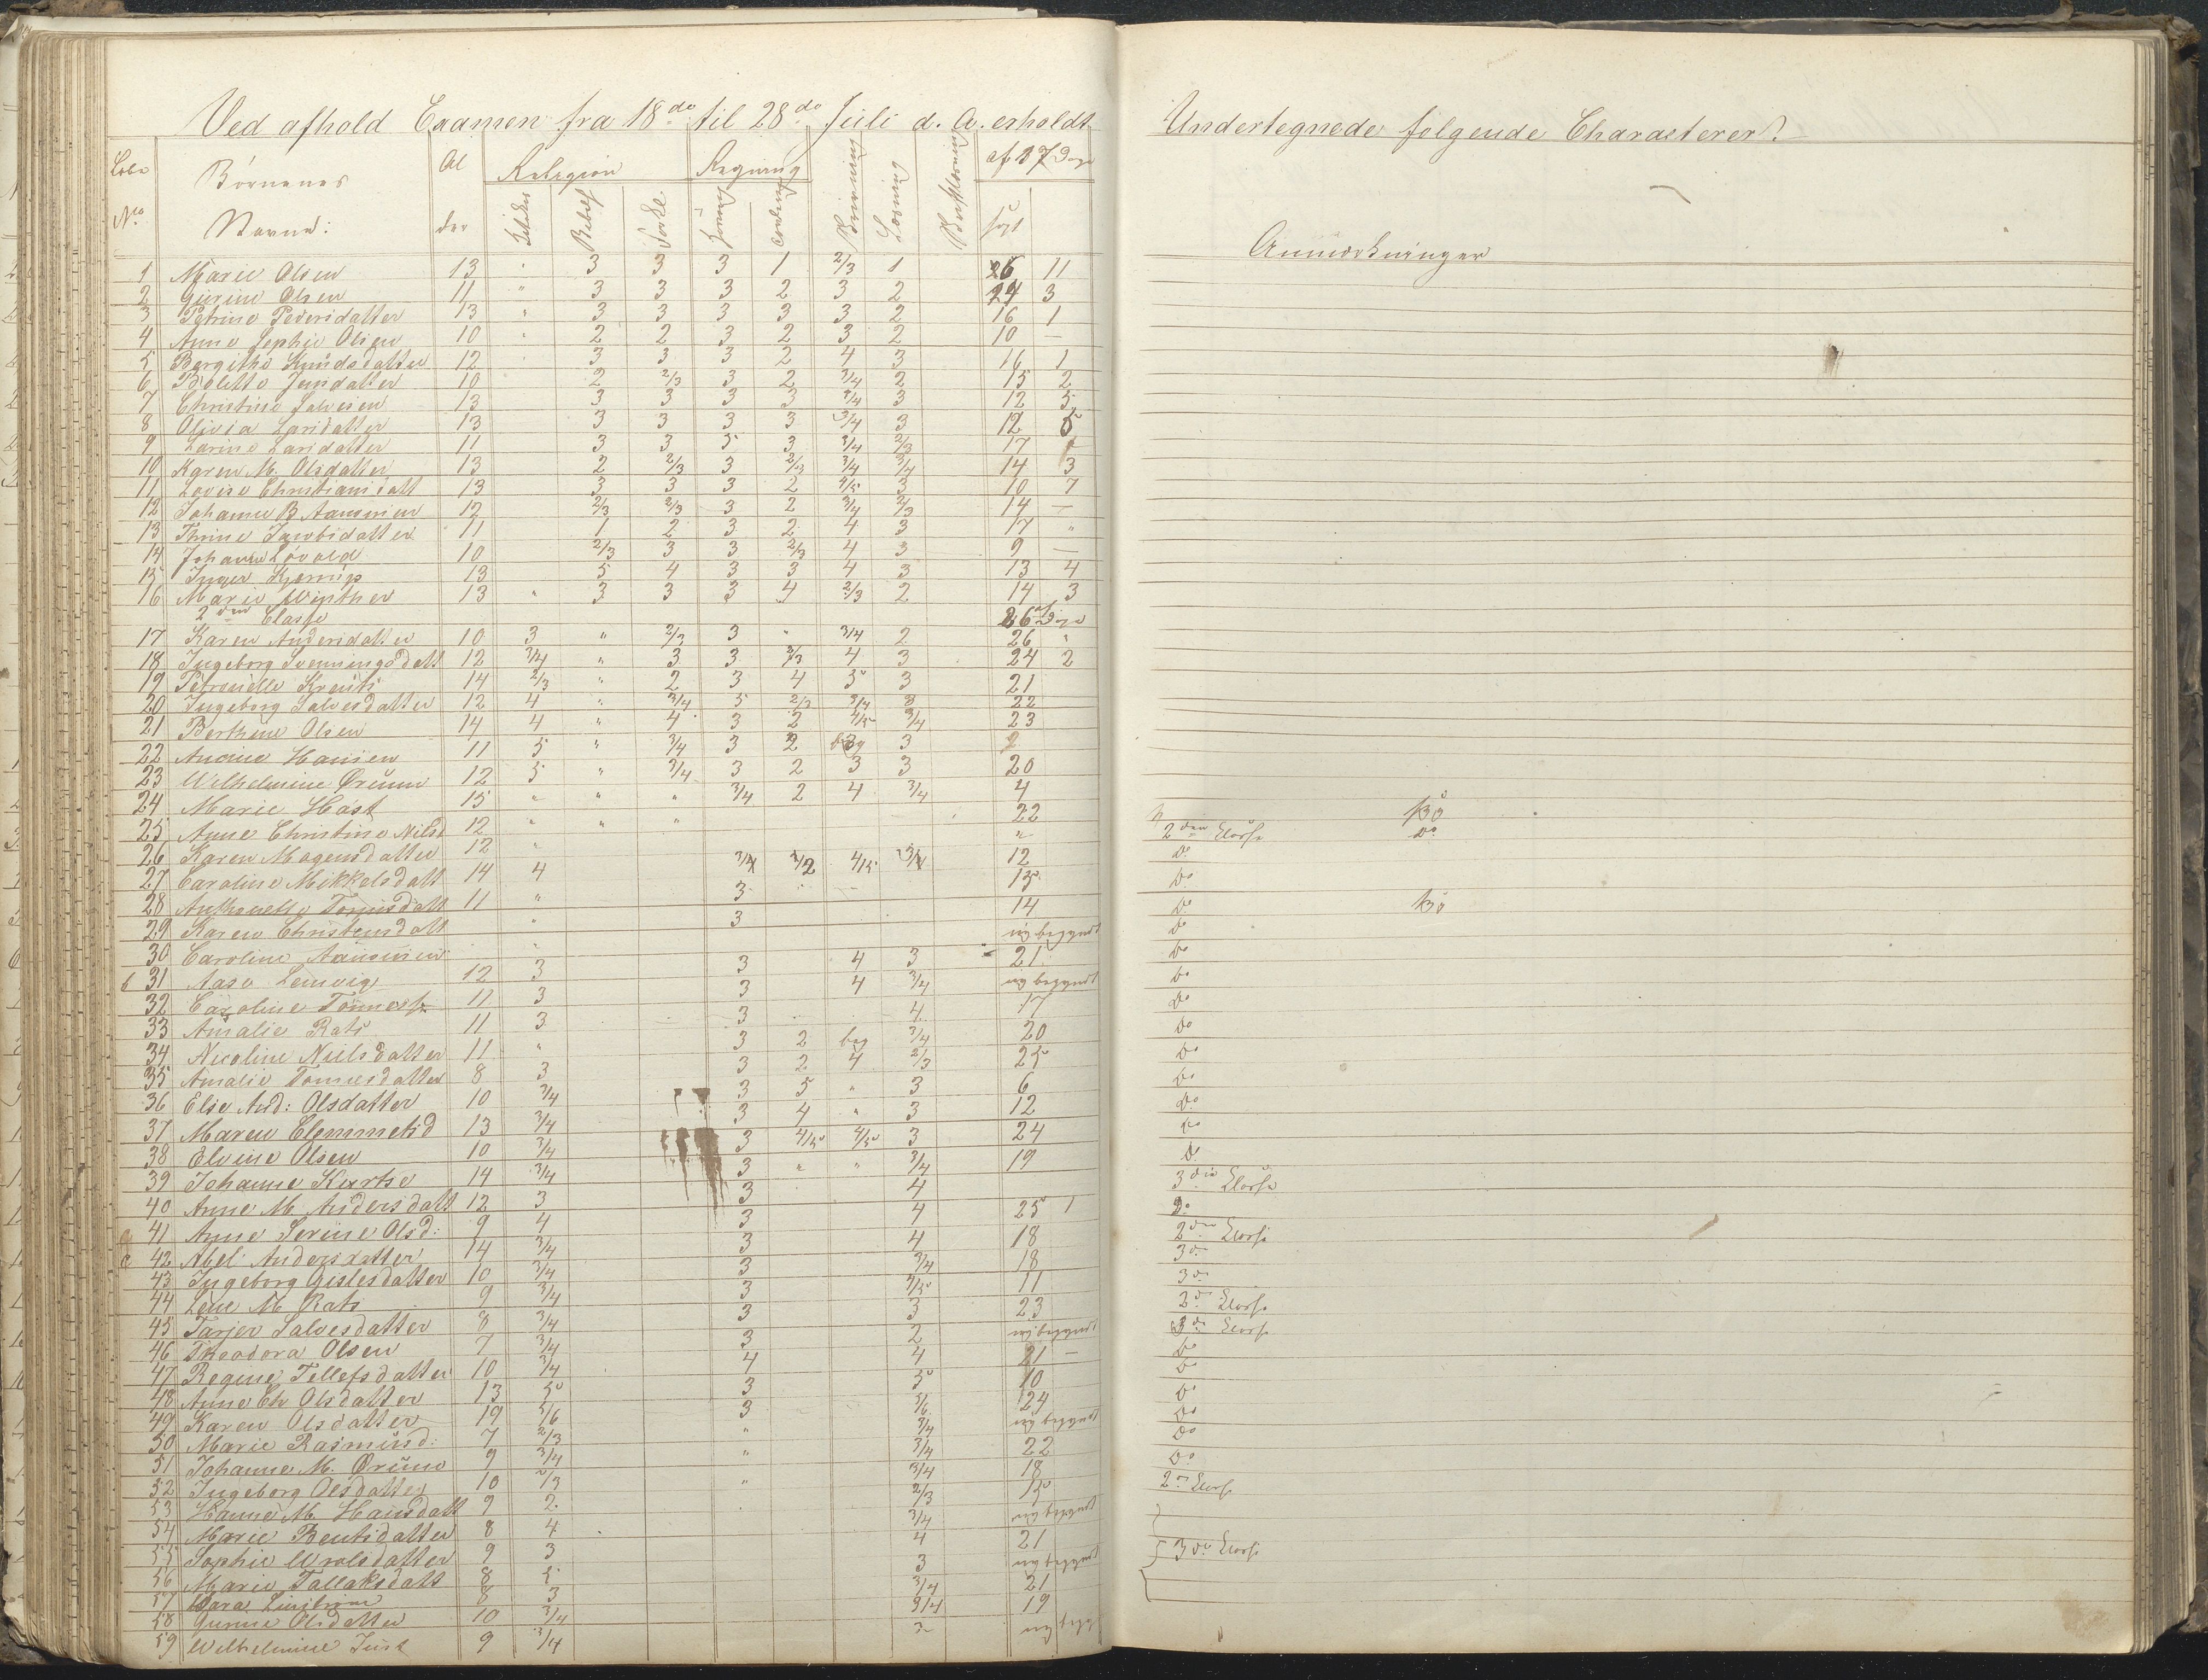 Ved afhold Examen fra 18de til 28de Juli d. A. erholdt
Undertegnede følgende Characterer.
Løbe No. Børnenes Navne: Alder Religion Regning Skrivning Læsning af 17 Dage
Anmærkninger
1 Marie Olsen 13 " 3 3 3 1 2/3 1 26 11
2 Gurine Olsen 11 " 3 3 3 2 3 2 24 3
3 Petrine Pedersdatter 13 " 3 3 3 3 3 2 16 1
4 Anne Sophie Olsen 10 " 2 2 3 2 3 2 10 —
5 Bergithe Knudsdatter 12 " 3 3 3 2 4 3 16 1
6 Jensdatter 10 2 2/3 3 2 3/4 2 15 2
7 Christine Salvesen 13 3 3 3 3 3/4 3 12 5
8 Olivia Larsdatter 13 3 3 3 3 3/4 3 12 5
9 Larine Larsdatter 11 3 3 5 3 3/4 2/3 17
10 Karen M. Olsdatter 13 2 2/3 3 2/3 3/4 3/4 14 3
11 Lovise Christiansdatt 13 3 3 3 2 4/5 3 10 7
12 Johanne B. Aanonsen 12 2/3 2/3 3 2 3/4 2/3 14 —
13 Thrine Jacobsdatter 11 1 2 3 2 4 3 17 "
14 Johanne Løvold 10 2/3 3 3 2/3 4 3 9 —
15 Inger 13 5 4 3 3 4 3 13 4
16 Marie Winther 13 " 3 3 3 4 2/3 2 14 3
2den Classe 26 Dage
17 Karen Andersdatter 10 3 " 2/3 3 " 3/4 2 26 "
18 Ingeborg Svenningsdatt 12 3/4 " 3 3 2/3 4 3 24 2
19 Petronelle 14 2/3 " 2 3 4 3 3 21
20 Ingeborg Salvesdatter 12 4 " 3/4 5 2/3 3/4 3 22
21 Berthine Olsen 14 4 " 4 3 2 4/5 3/4 23
22 Hansen 11 5 " 3/4 3 2 3 2
23 Wilhelmine Ørum 12 5 " 3/4 3 2 3 3 20
24 Marie Høst 15 " " " 3/4 2 4 3/4 4
25 Anne Christine Nilse 12 " " " 22
26 Karen Mogensdatter 12 " "
2den Classe Do
27 Caroline Mikkelsdatt 14 4 3/4 1/2 4/5 3/4 12 Do
28 Tønnisdatt 11 " 3 13 Do
29 Karen Christensdatt " 3 14 Do
30 Caroline Aanonsen " ny begyndt Do
31 Aase Lemvig 12 3 3 4 3 21 Do
32 Caroline Tønnes 11 3 3 4 3/4 ny begyndt Do
33 Amalie Rats 11 3 3 4 17 Do
34 Nicoline Nielsdatter 11 " 3 2 beg 3/4 20 Do
35 Amalie Tønnesdatter 8 3 3 2 4 2/3 25 Do
36 Elise And: Olsdatter 10 3/4 3 5 " 3 6 Do
37 Maren Clemmetsd 13 3/4 3 4 " 3 12 Do
38 Elvine Olsen 10 3/4 3 4/5 4/5 3 24 Do
39 Johanne Kurtse 14 3/4 3 " " 3/4 19 3die Classe
40 Anne M. Andersdatt 12 3 3 4 Do
41 Anne Serine Olsd: 9 4 3 4 25 1 2den Classe
42 Abel Andersdatter 14 3/4 3 4 18 3de
43 Ingeborg Gislesdatter 10 3/4 3 3/4 18 3de
44 Lene M. Rats 9 3/4 3 3/5 11 2de Classe
45 Tarjer Salvesdatter 8 3/4 3 3 23 3de Classe
46 Theodora Olsen 7 3/4 3 2 ny begyndt Do
47 Regine Tellefsdatter 10 3/4 4 4 21 — Do
48 Anne Ch Olsdatter 13 5 3 5 10 Do
49 Karen Olsdatter 19 5/6 3 5/6 24 Do
50 Marie Rasmusd: 7 2/3 " 3/4 ny begyndt Do
51 Johanne M. Ørum 9 3/4 " 3/4 22 Do
52 Ingeborg Olsdatter 10 2/3 " 3/4 18 2de Classe
53 Hanne M. Hansdatt 9 2 2/3 13
54 Marie Bentsdatter 8 4 3/4 ny begyndt
55 Sophie Wrolsdatter 9 3 4 21
3de Classe
56 Marie Tallaksdatt 8 5 3 ny begyndt
57 Sara 8 3 3/4 21
58 Gunne Olsdatter 10 3/4 3/4 19
59 Wilhelmine Juul 9 3/4 3 ny begyndt